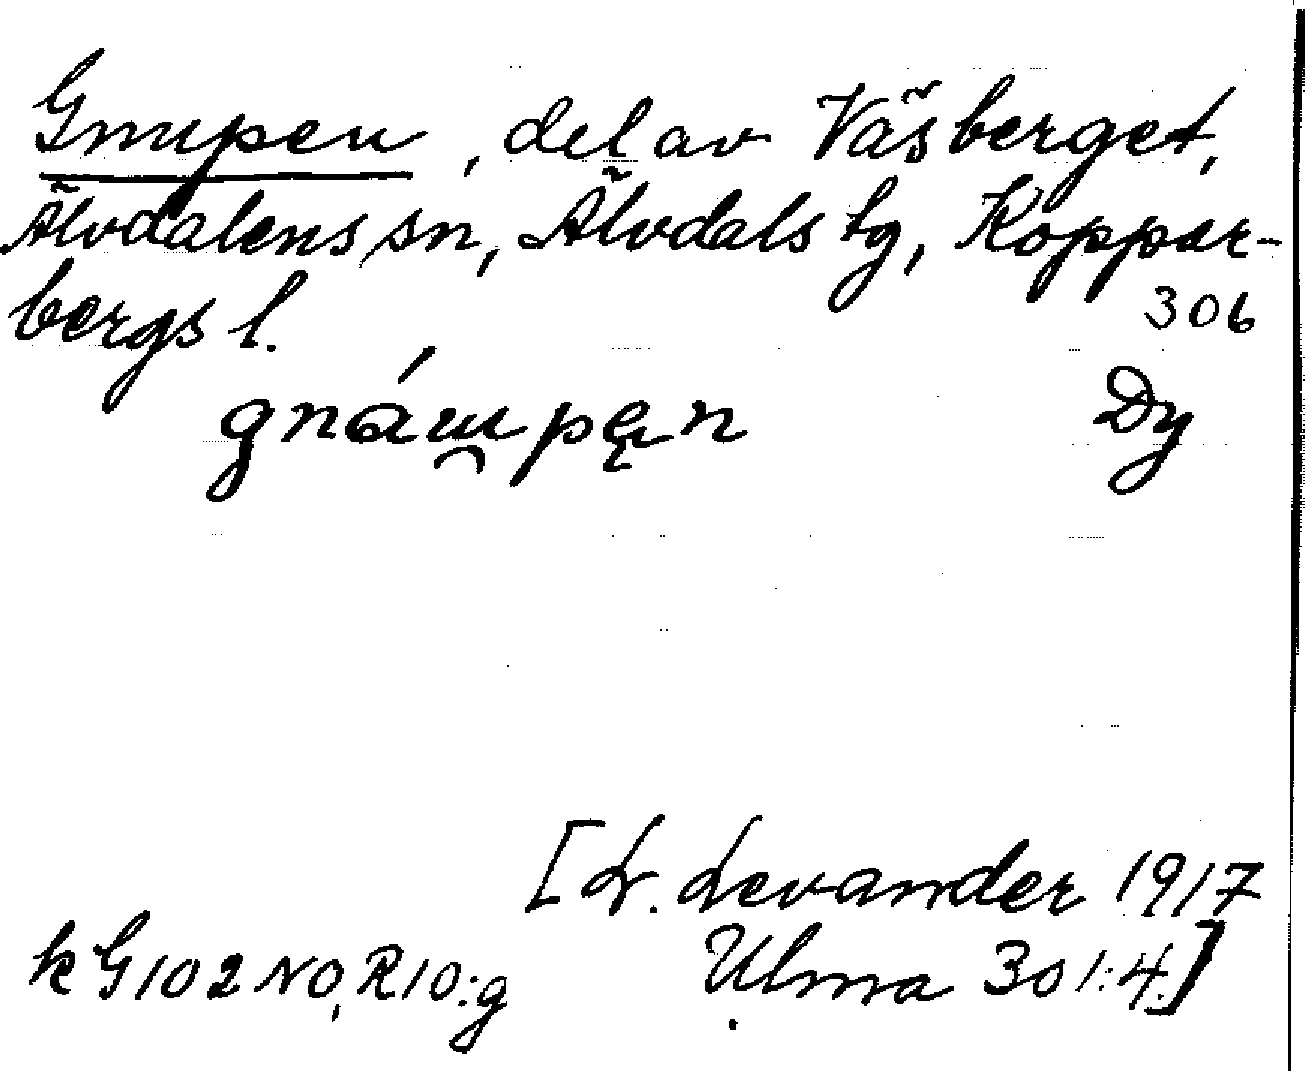 Gnupen, del av Väsberget,
Älvdalens sn, Älvdals tg, Koppar-
bergs l.
306
Dy
[L. Levander 1917
Ulma 301:4.]
kG102 NO, R10:g